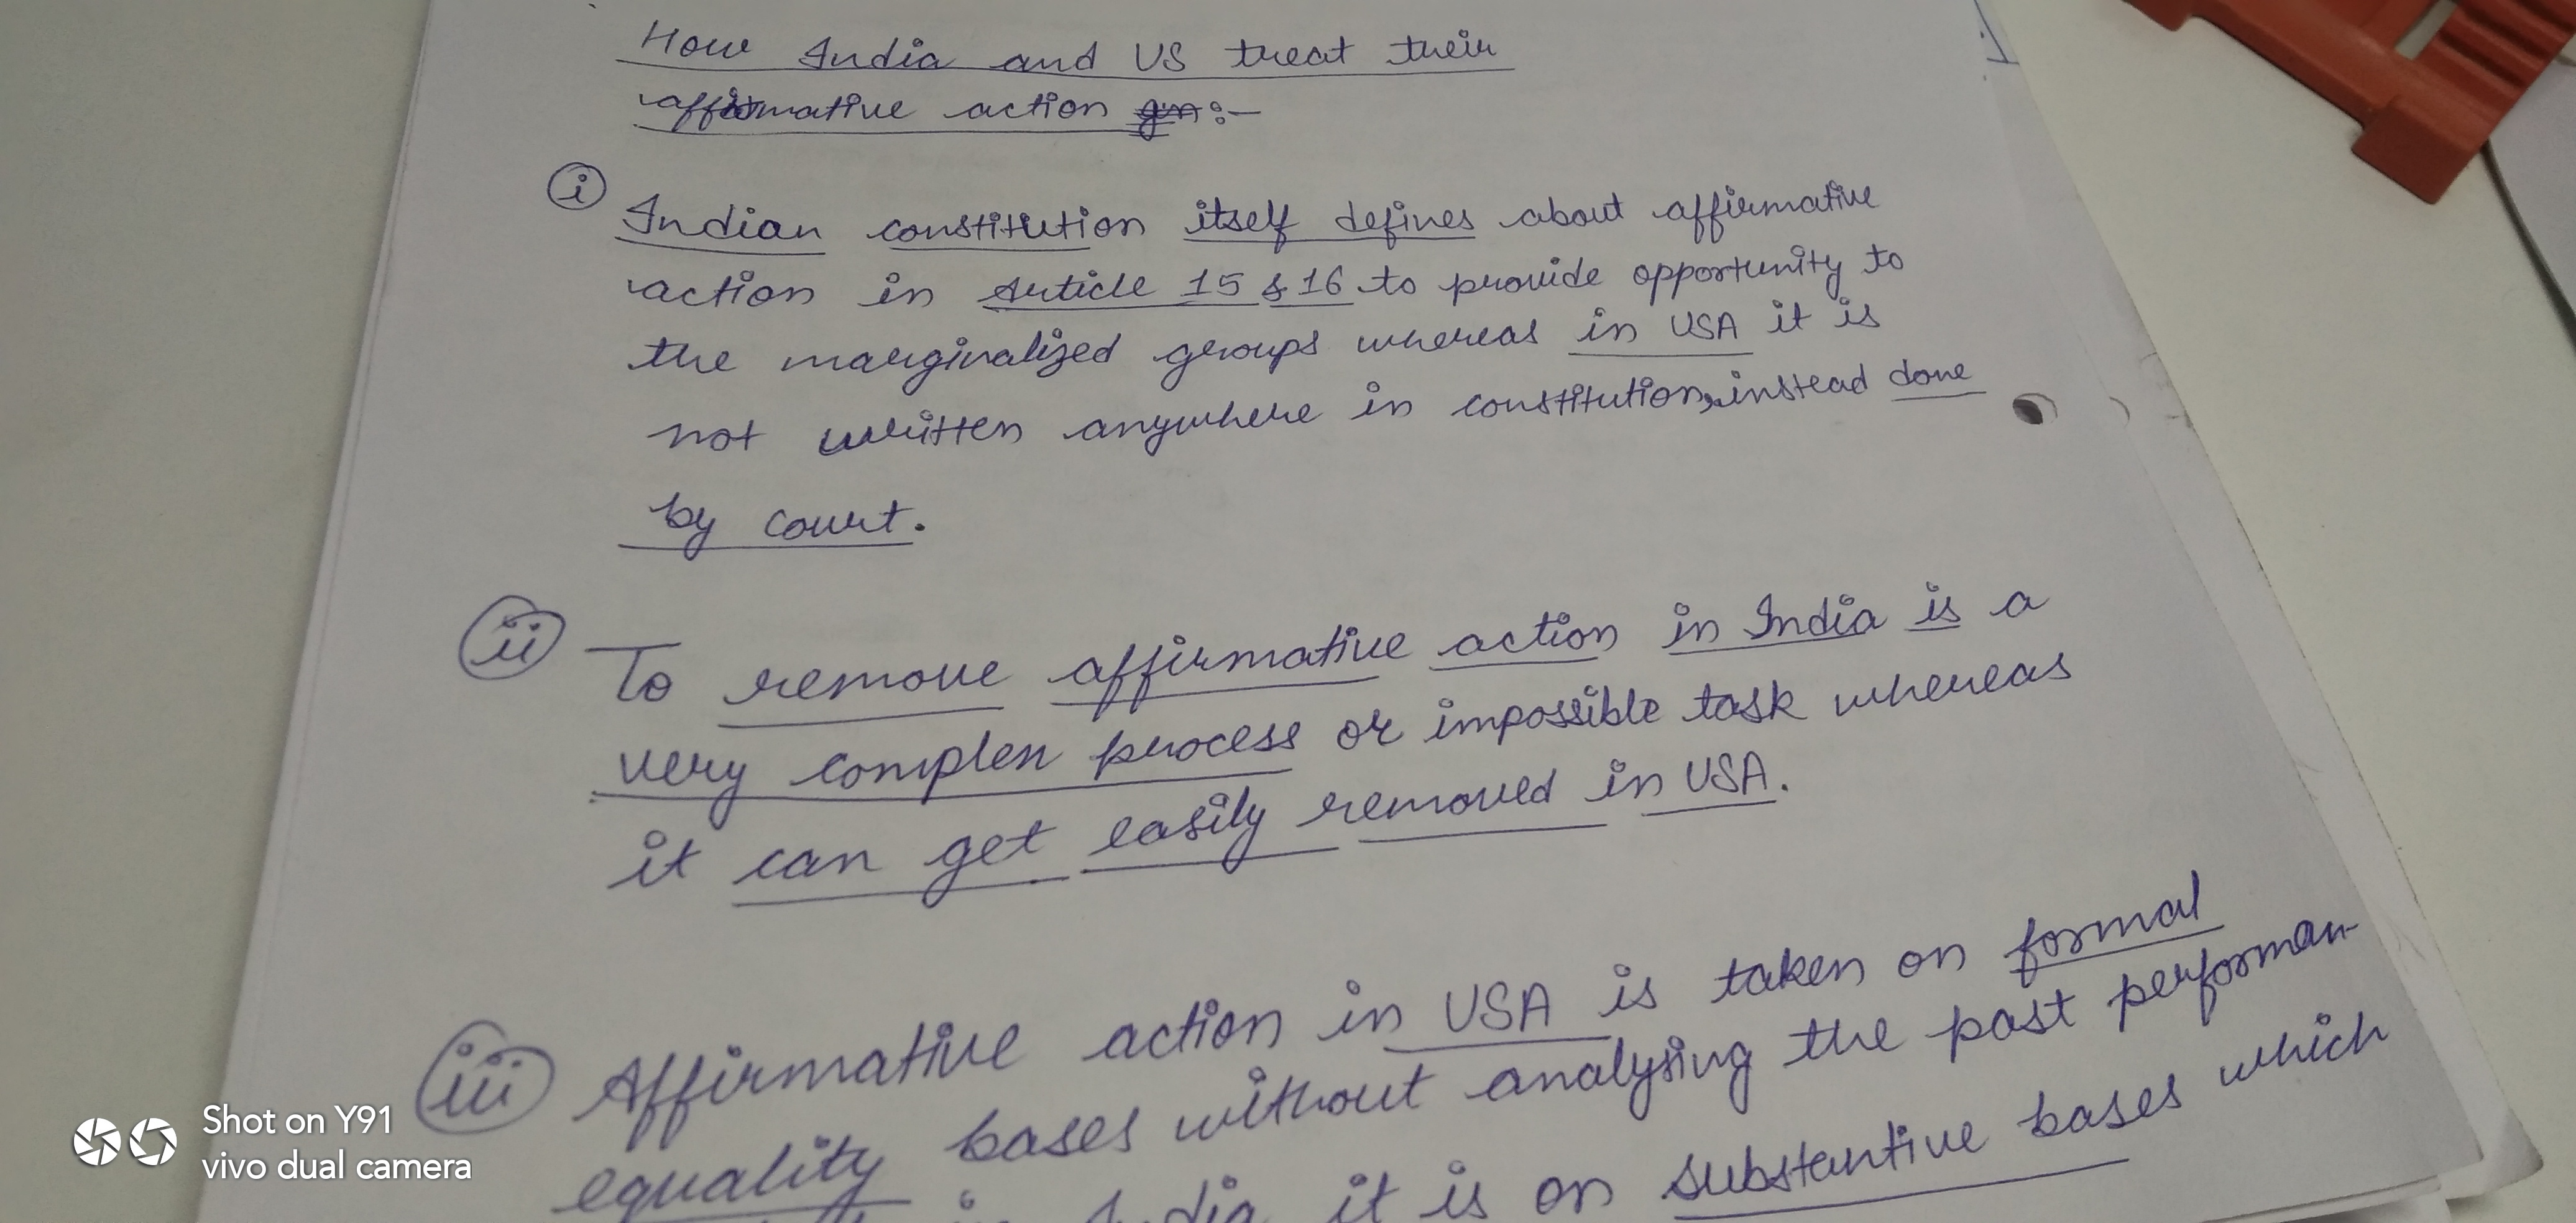 How India and US treat their
affirmative action :-
i Indian constitution itself defines about affirmative
action in Article 15 & 16 to provide opportunity to
the marginalized groups whereas in USA it is
not written anywhere in constitution, instead done
by court.
ii To remove affirmative action in India is a
very complen process or impossible task whereas
it can get easily removed in USA.
iii Affirmative action in USA is taken on formal
equality bases without analysing the past performan-
in India it is on substantive bases which
Shot on Y91
vivo dual camera